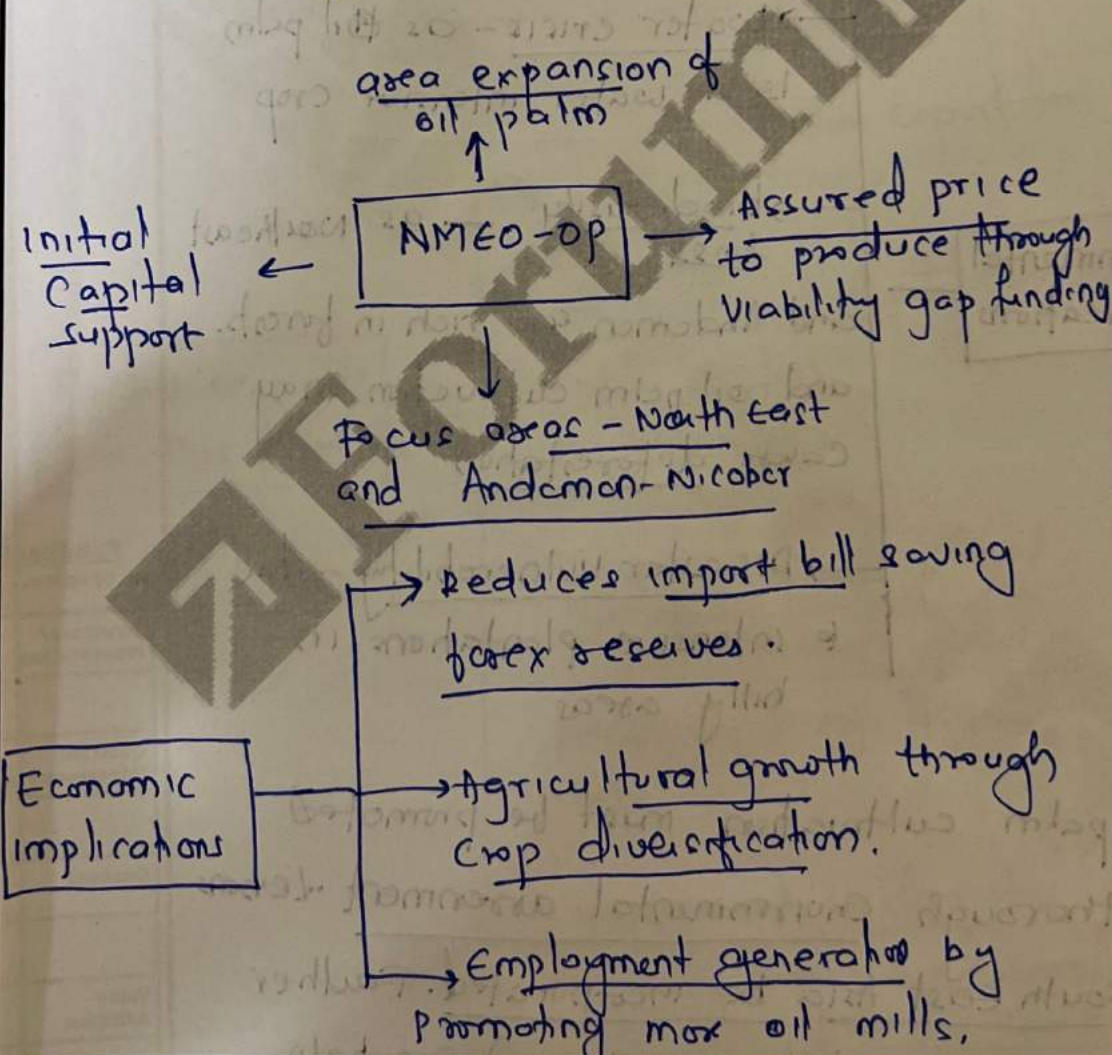 area expansion of
oil palm
NMEO-OP
Initial
Capital
support
Assured price
to produce through
viability gap funding
Focus areas - North East
and Andaman-Nicobar
Economic
implications
Reduces import bill saving
forex reserves.
Agricultural growth through
crop diversification.
Employment generation by
promoting more oil mills.
Forum